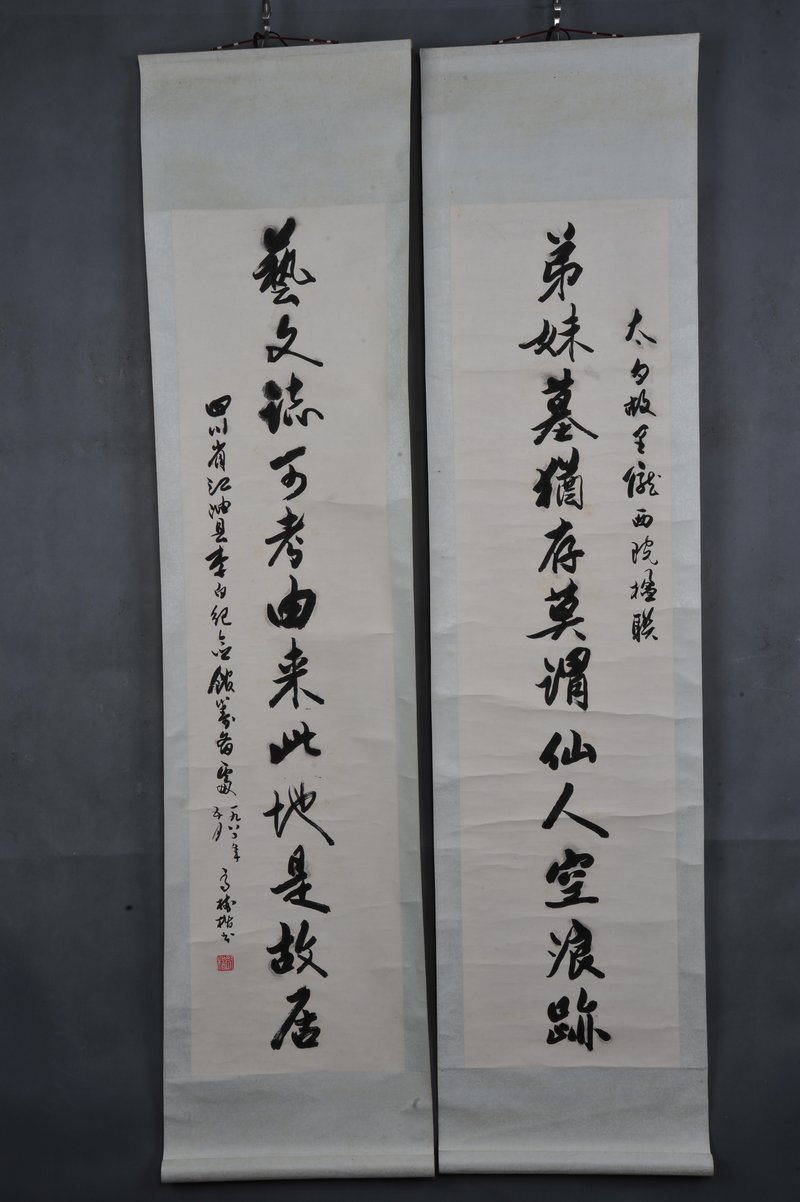 太白故里隴西院楹聯
弟妹墓猶存莫謂仙人空浪跡
藝文誌可考由来此地是故居
四川省江油县李白纪念館籌备處
一九八二年
五月
高樹楷书